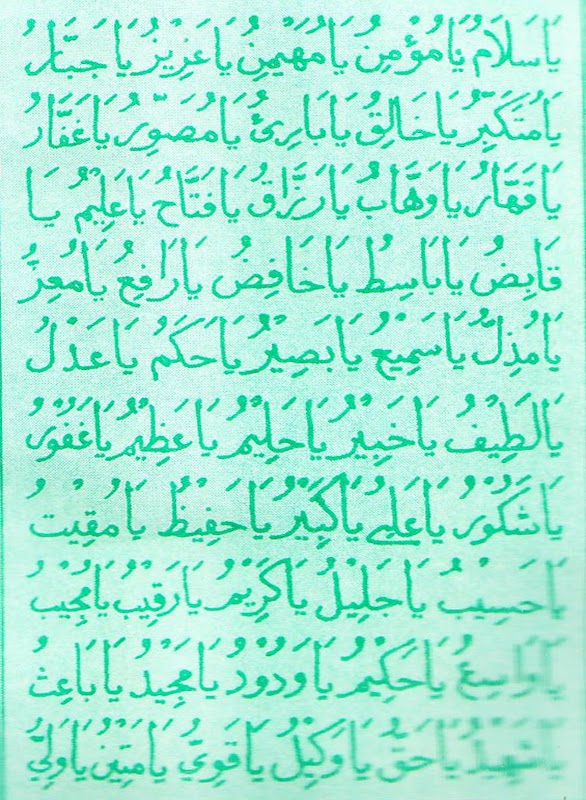 يَا سَلَامُ يَا مُؤْمِنُ يَا مُهَيْمِنُ يَا عَزِيزُ يَا جَبَّارُ
يَا مُتَكَبِّرُ يَا خَالِقُ يَا بَارِئُ يَا مُصَوِّرُ يَا غَفَّارُ
يَا قَهَّارُ يَا وَهَّابُ يَا رَزَّاقُ يَا فَتَّاحُ يَا عَلِيْمُ يَا
قَابِضُ يَا بَاسِطُ يَا خَافِضُ يَا رَافِعُ يَا مُعِزُّ
يَا مُذِلُّ يَا سَمِيْعُ يَا بَصِيْرُ يَا حَكَمُ يَا عَدْلُ
يَا لَطِيْفُ يَا خَبِيْرُ يَا حَلِيْمُ يَا عَظِيْمُ يَا غَفُوْرُ
يَا شَكُوْرُ يَا عَلِيُّ يَا كَبِيْرُ يَا حَفِيْظُ يَا مُقِيْتُ
يَا حَسِيْبُ يَا جَلِيْلُ يَا كَرِيْمُ يَا رَقِيْبُ يَا مُجِيْبُ
يَا وَاسِعُ يَا حَكِيْمُ يَا وَدُوْدُ يَا مَجِيْدُ يَا بَاعِثُ
يَا شَهِيْدُ يَا حَقُّ يَا وَكِيْلُ يَا قَوِيُّ يَا مَتِيْنُ يَا وَلِيُّ